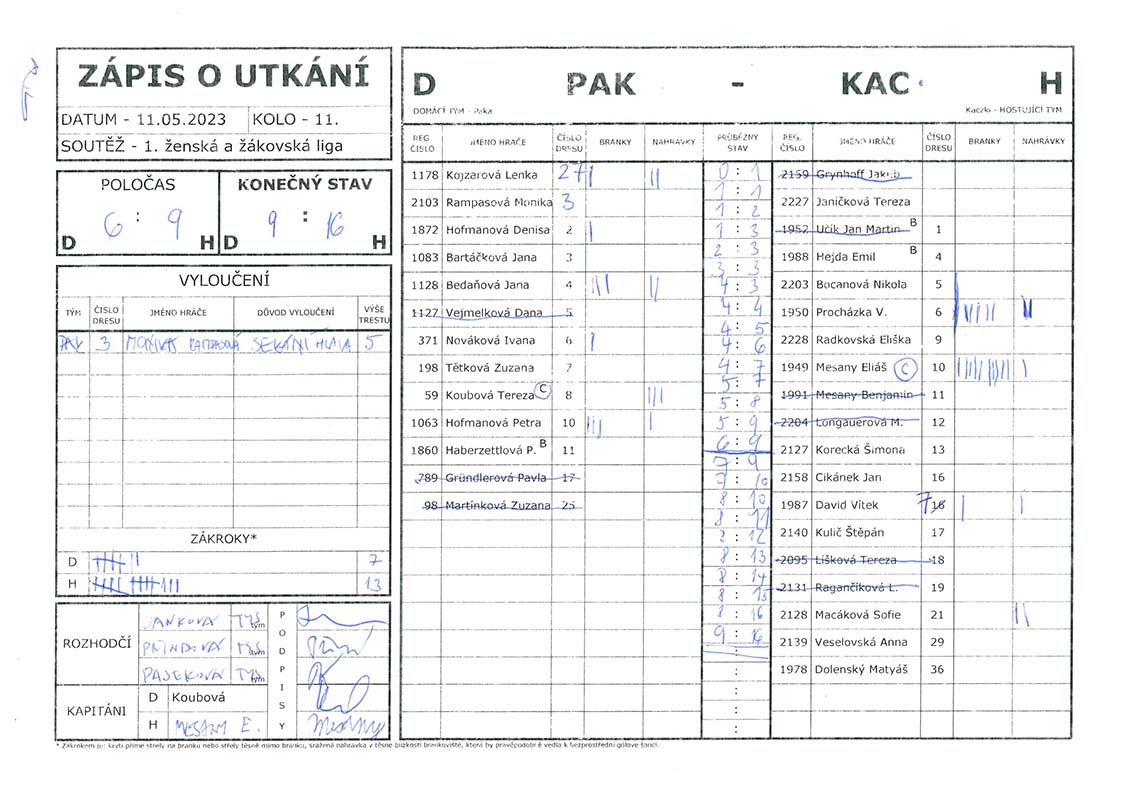 ZÁPIS O UTKÁNÍ
DATUM - 11.05.2023 KOLO - 11.
SOUTĚŽ - 1. ženská a žákovská liga
POLOČAS KONEČNÝ STAV
6 : 9 9 : 16
D H D H
VYLOUČENÍ
TÝM ČÍSLO DRESU JMÉNO HRÁČE DŮVOD VYLOUČENÍ VÝŠE TRESTU
PAK 3 SEKÁNÍ HLAVA 5
ZÁKROKY*
D 7
H 13
ROZHODČÍ
JANKOVÁ TYS tým
PŘINDOVÁ TYS tým
PAJEKOVÁ TYS tým
PODPISY
KAPITÁNI
D Koubová
H MESANY E.
D PAK - KAC H
DOMÁCÍ TÝM - Paka Kaczki - HOSTUJÍCÍ TÝM
REG. ČÍSLO JMÉNO HRÁČE ČÍSLO DRESU BRANKY NAHRÁVKY PRŮBĚŽNÝ STAV REG. ČÍSLO JMÉNO HRÁČE ČÍSLO DRESU BRANKY NAHRÁVKY
1178 Kojzarová Lenka 27
2103 Rampasová Monika 3
1872 Hofmanová Denisa 2
1083 Bartáčková Jana 3
1128 Bedaňová Jana 4
1127 Vejmelková Dana 5
371 Nováková Ivana 6
198 Tětková Zuzana 7
59 Koubová Tereza C 8
1063 Hofmanová Petra 10
1860 Haberzettlová P. B 11
789 Gründlerová Pavla 17
98 Martínková Zuzana 25
0 : 1
1 : 1
1 : 2
1 : 3
2 : 3
3 : 3
4 : 3
4 : 4
4 : 5
4 : 6
4 : 7
5 : 7
5 : 8
5 : 9
6 : 9
7 : 9
7 : 10
8 : 10
8 : 11
8 : 12
8 : 13
8 : 14
8 : 15
8 : 16
9 : 16
2159 Grynhoff Jakub
2227 Janíčková Tereza
1952 Učík Jan Martin B 1
1988 Hejda Emil B 4
2203 Bocanová Nikola 5
1950 Procházka V. 6
2228 Radkovská Eliška 9
1949 Mesany Eliáš C 10
1991 Mesany Benjamin 11
2204 Longauerová M. 12
2127 Korecká Šimona 13
2158 Cikánek Jan 16
1987 David Vítek 7 16
2140 Kulič Štěpán 17
2095 Lišková Tereza 18
2131 Ragančíková L. 19
2128 Macáková Sofie 21
2139 Veselovská Anna 29
1978 Dolenský Matyáš 36
* Zákrokem je: krytí přímé střely na branku nebo střely těsně mimo branku, sražená nahrávka v těsné blízkosti brankoviště, která by pravděpodobně vedla k bezprostřední gólové šanci.